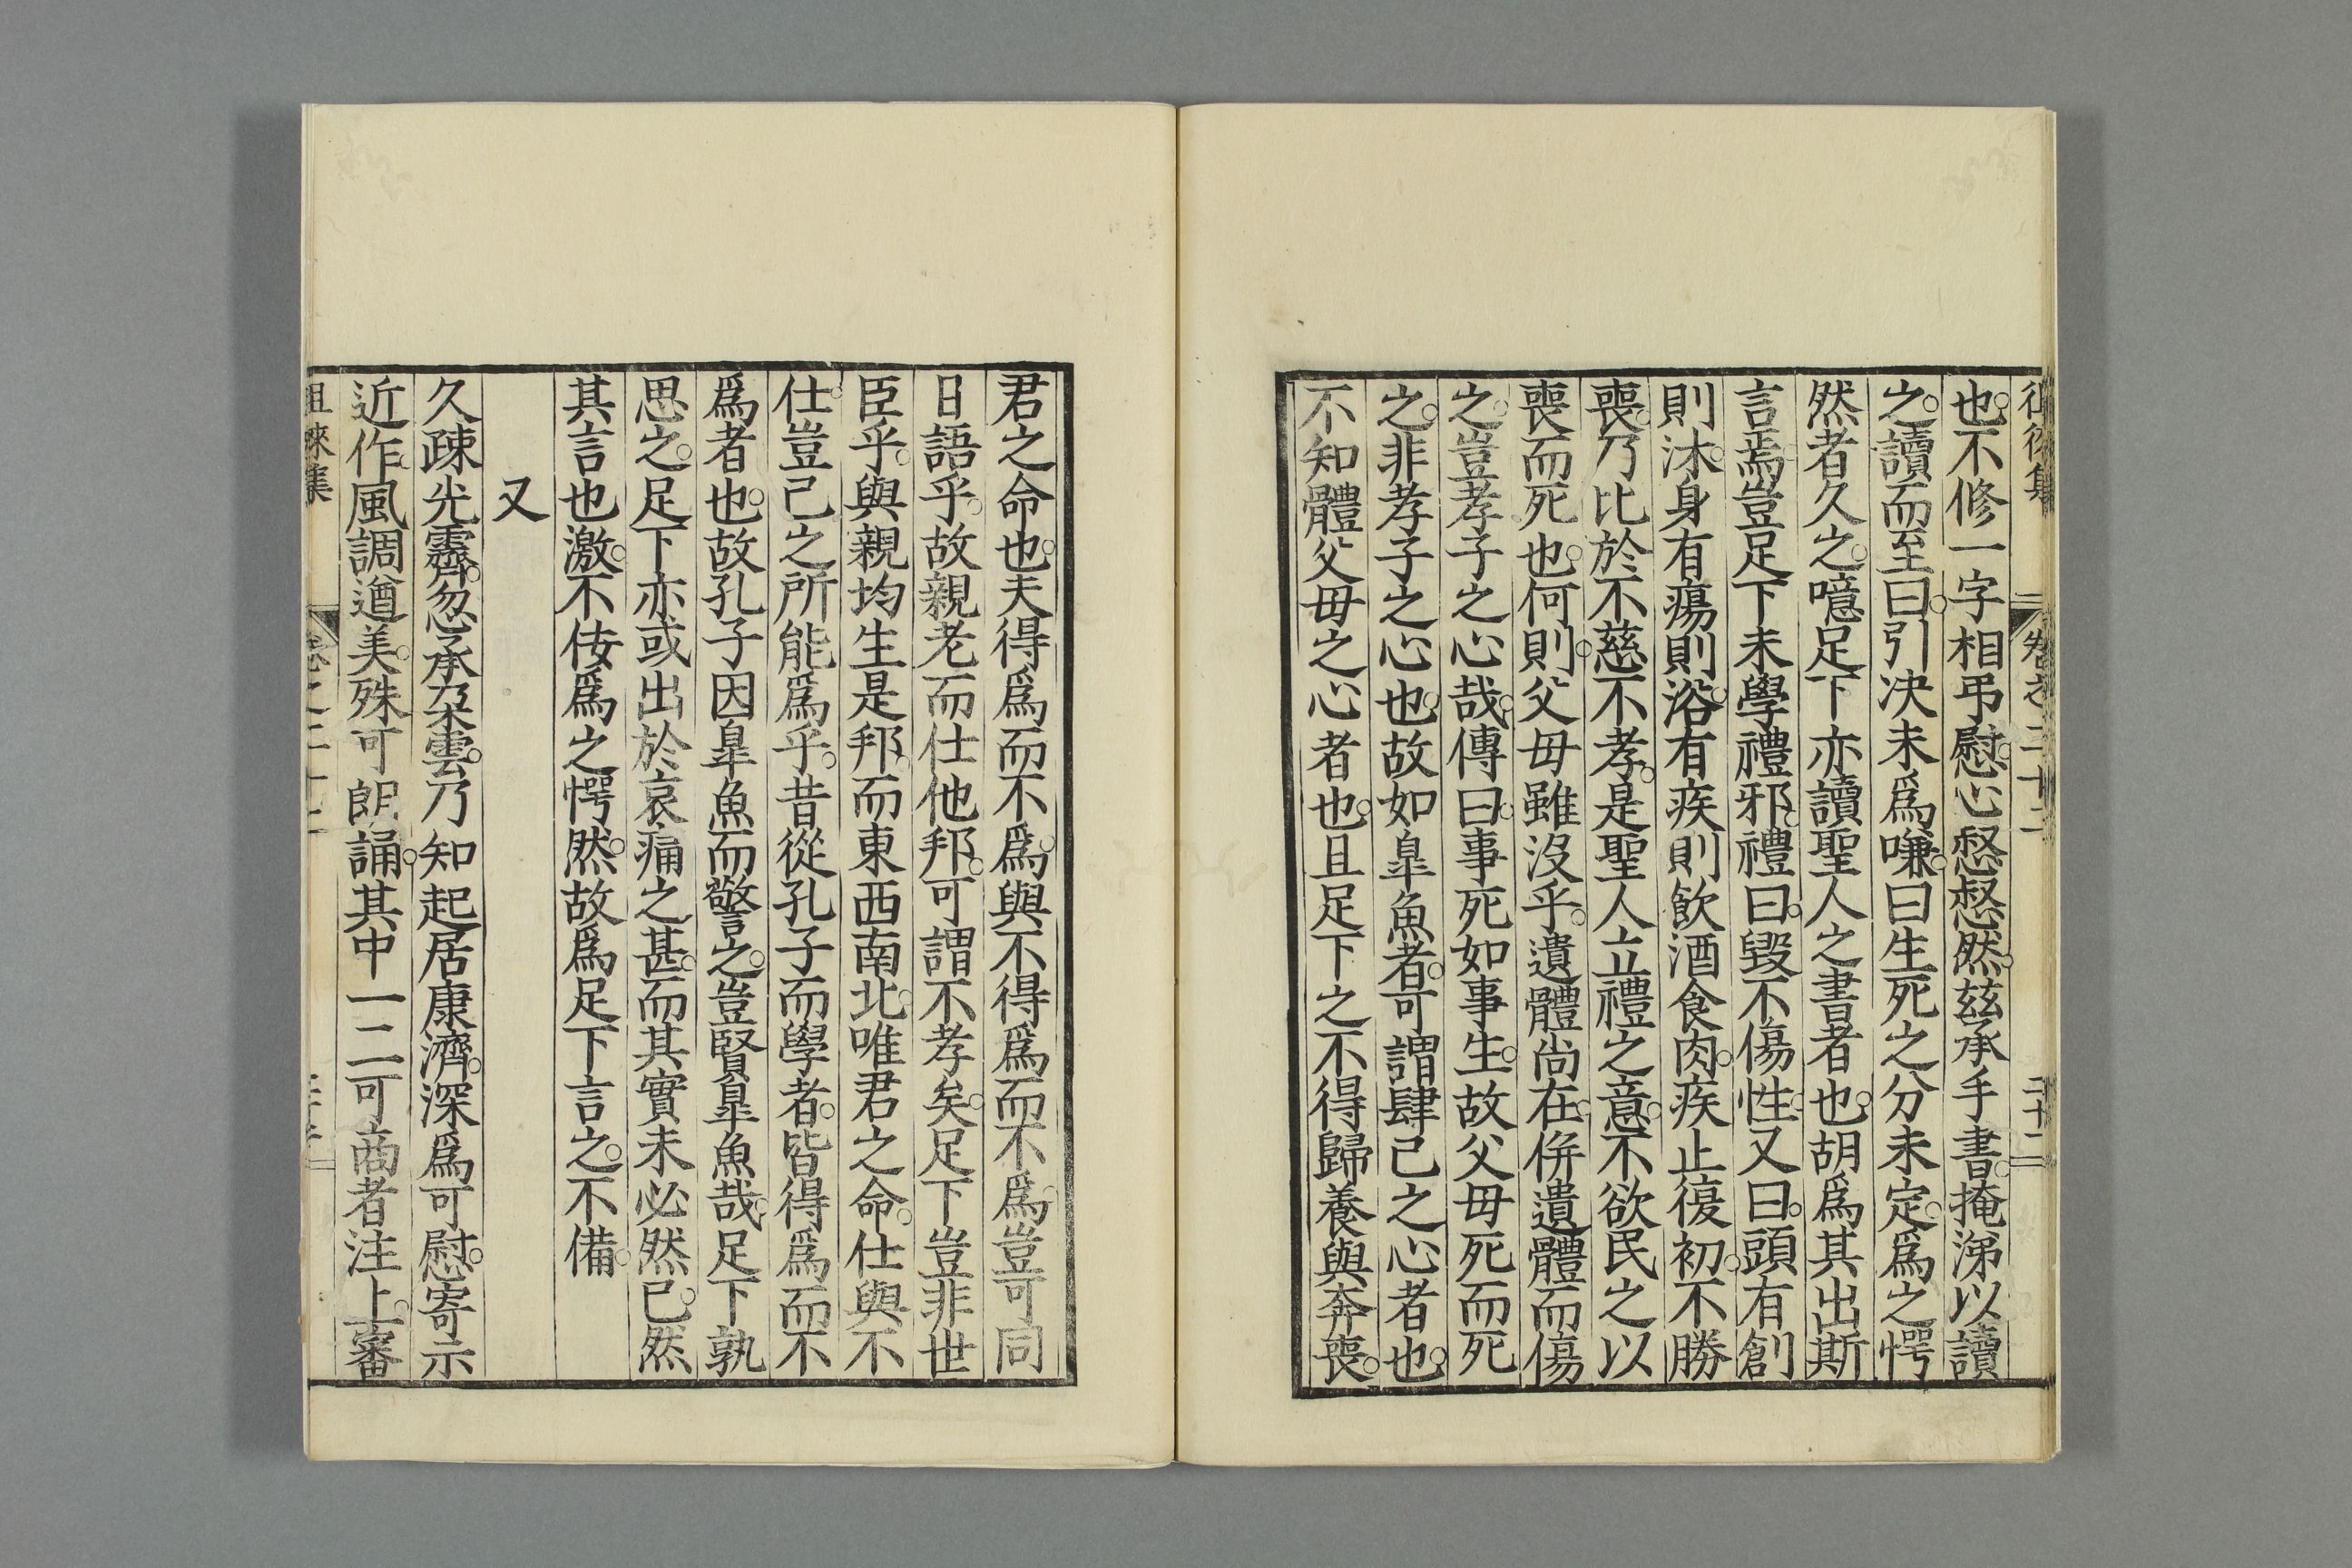 也。不修一字相弔慰。心惄惄然。茲承手書。掩涕以讀
之。讀而至曰。引決未爲嗛。曰生死之分未定。爲之愕
然者久之。噫足下亦讀聖人之書者也。胡爲其出斯
言焉。豈足下未學禮邪。禮曰。毀不傷性。又曰。頭有創
則沐。身有瘍則浴。有疾則飲酒食肉。疾止復初。不勝
喪。乃比於不慈不孝。是聖人立禮之意。不欲民之以
喪而死也。何則。父母雖沒乎。遺體尚在。倂遺體而傷
之。豈孝子之心哉。傳曰。事死如事生。故父母死而死
之。非孝子之心也。故如皐魚者。可謂肆己之心者也。
不知體父母之心者也。且足下之不得歸養與奔喪。
君之命也。夫得爲而不爲。與不得爲而不爲。豈可同
日語乎。故親老而仕他邦。可謂不孝矣。足下豈非世
臣乎。與親均生是邦。而東西南北。唯君之命。仕與不
仕。豈己之所能爲乎。昔從孔子而學者。皆得爲而不
爲者也。故孔子因皐魚而警之。豈賢皐魚哉。足下孰
思之。足下亦或出於哀痛之甚。而其實未必然已。然
其言也激。不佞爲之愕然。故爲足下言之。不備。
又
久疎光霽。忽承朶雲。乃知起居康濟。深爲可慰。寄示
近作。風調遒美。殊可朗誦。其中一二可商者注上。審
徂徠集　卷之二十二